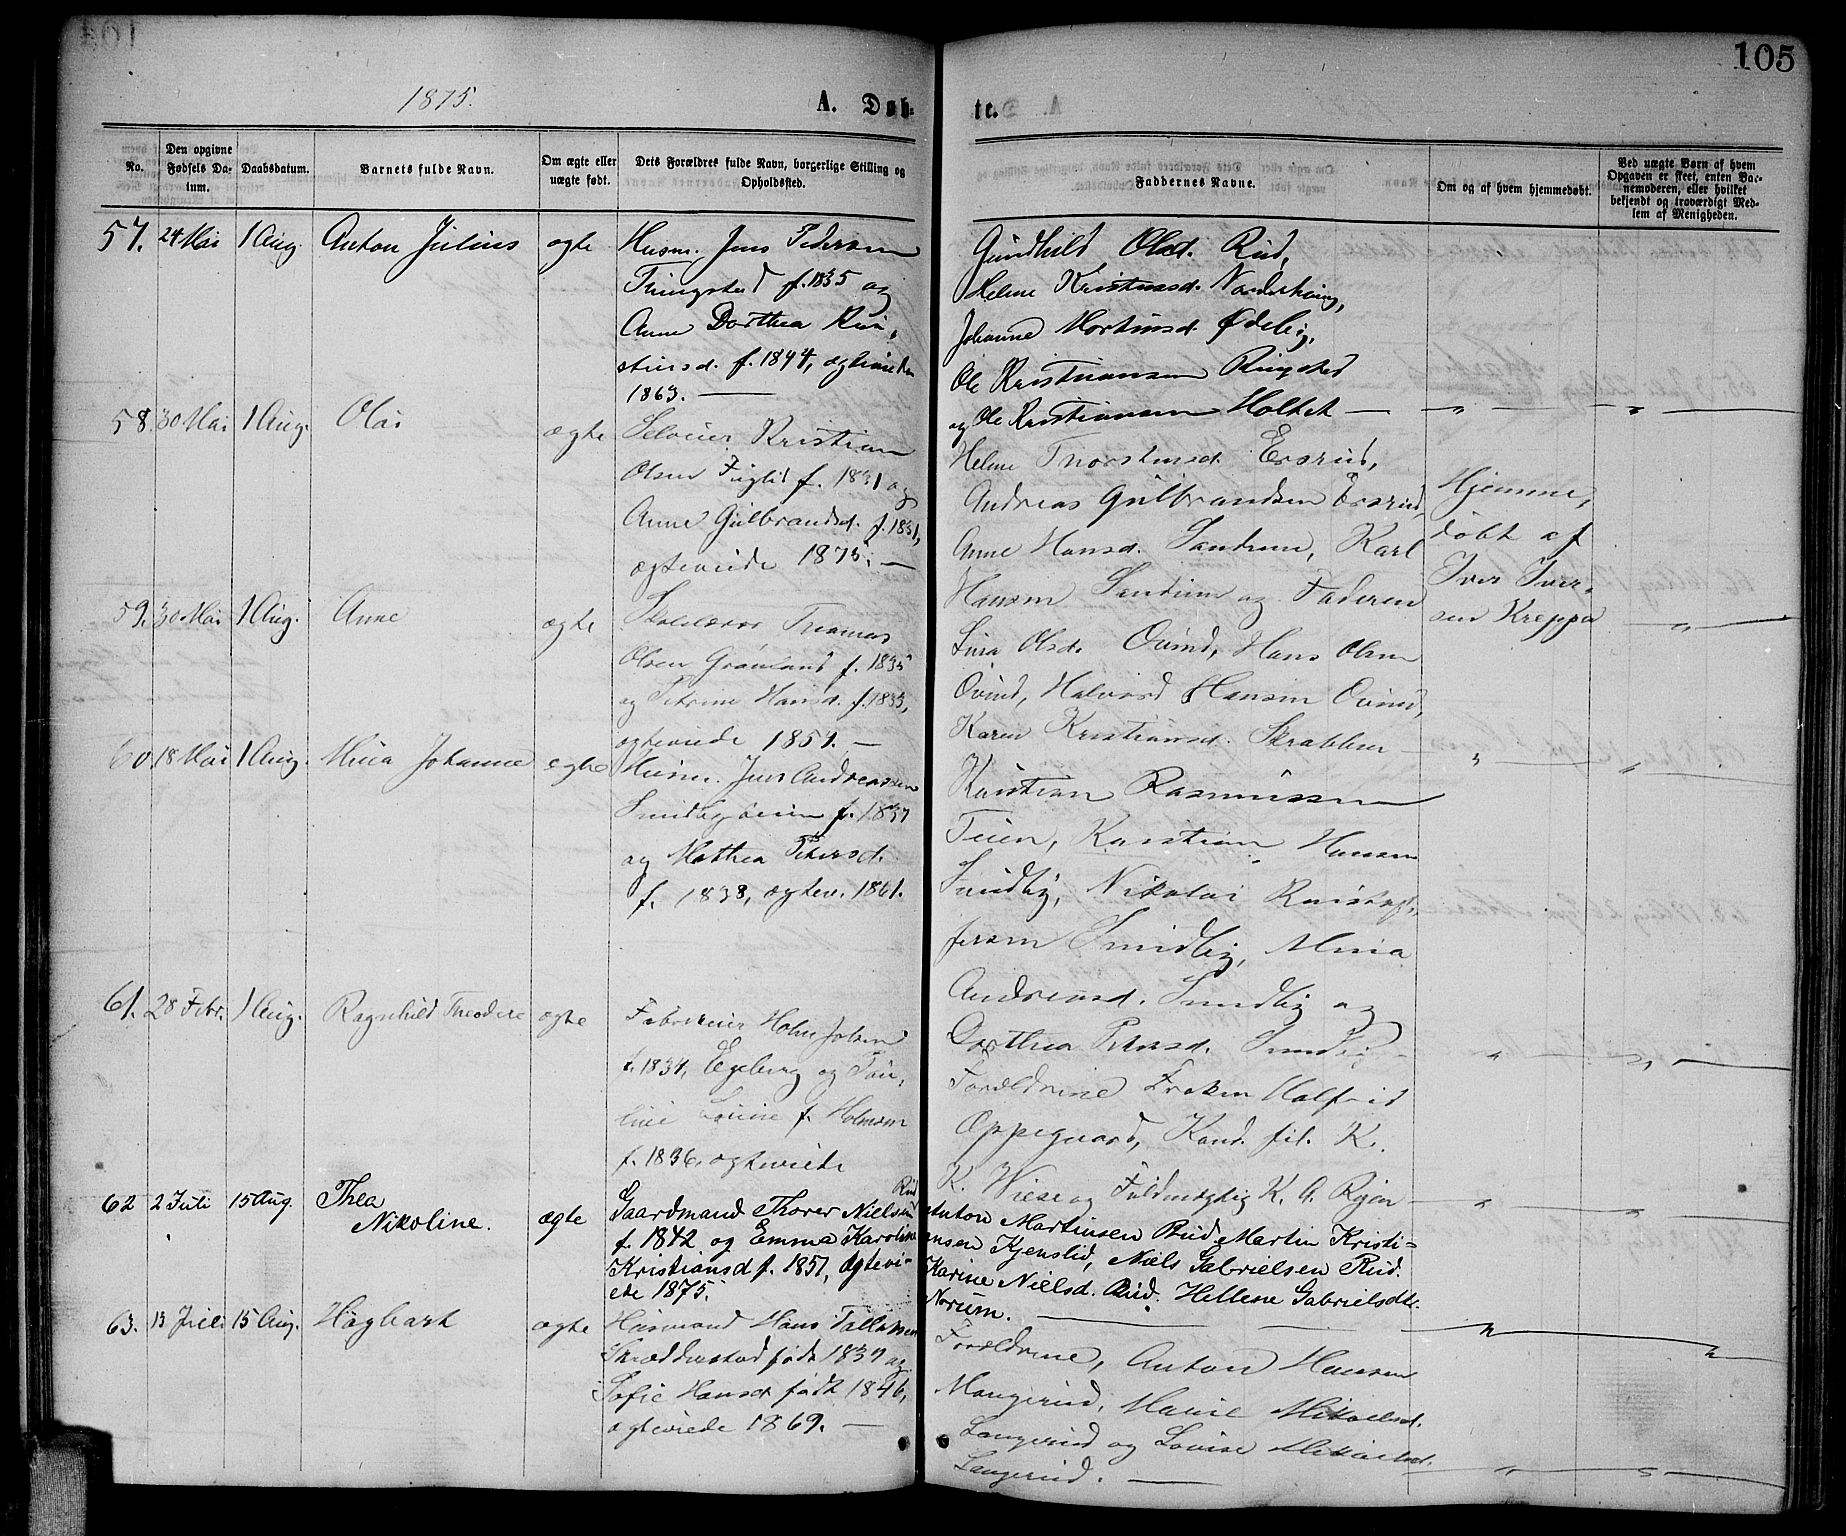 105
1875.
A. Døb-
te.
No.
Den opgivne Fødsels Datum.
Daabsdatum.
Barnets fulde Navn.
Om ægte eller uægte født.
Dets Forældres fulde Navn, borgerlige Stilling og Opholdssted.
Faddernes Navne.
Om og af hvem hjemmedøbt.
Ved uægte Børn af hvem Opgaven er skeet, enten Barnemoderen, eller hvilket bekjendt og troværdigt Medlem af Menigheden.
57. 24 Mai 1 Aug. Anton Julius ægte
Husm. Jens Pedersen
f. 1835 og
Anne Dorthea Kri-
stiansd. f. 1844, ægteviede
1863. —
Gundhild Olsd. Rud,
Helene Kristiansd.
Johanne Martinsd. Ødeby,
Ole Kristiansen Ringsted
og Ole Kristiansen Holtet —
58. 30 Mai 1 Aug. Olai ægte
Selveier Kristian
Olsen Fuglid f. 1831 og
Anne Gulbrandsd. f. 1831,
ægteviede 1875. —
Helene Thorstensd. Ersrud,
Andreas Gulbrandsen Ersrud,
Anne Hansd. Sandum, Karl
Hansen Sandum og Faderen
Hjemme-
døbt af
Iver Iver-
sen Kreppa
59. 30 Mai 1 Aug. Anne ægte
Thomas
Olsen Grønland f. 1835
og Petrine Hansd. f. 1833,
ægteviede 1857. —
Lina Olsd. Ovind, Hans Olsen
Ovind, Halvord Hansen Ovind,
Karen Kristiansd. Skrabben
60. 18 Mai 1 Aug. Mina Johanne ægte
Husm. Jens Andreassen
Smidbyeien f. 1837
og Mathea Petersd.
f. 1838, ægtev. 1861.
Kristian Rasmussen
Teien, Kristian Hansen
Smidby, Nikolai Kristof-
fersen Smidby, Mina
Andreasd. Smidby og
Dorthea Petersd. Smidby
61. 28 Febr. 1 Aug. Ragnhild Theodore ægte
Holm Jolsen
f. 1834, Egeberg og Pau-
line Louise f. Holmsen
f. 1836, ægteviede
Forældrene, Frøken Halfrid
Oppegaard, Kand. fil. K.
K. Wiese og Fuldmægtig K. A.
62 2 Juli 15 Aug. Thea
Nikoline. ægte
Gaardmand Thorer Nielsen Rud
f. 1842 og Emma Karoline
Kristiansd. f. 1851, ægtevi-
ede 1875.
Anton Martinsen Rud, Martin Kristi-
ansen Kjenslid, Niels Gabrielsen Rud.
Karine Nielsd. Rud. Hellene Gabrielsdt.
Norum.
63. 13 Juli 15 Aug. Hagbart ægte
Husmand Hans Tollefsen
Skrædderstad født 1837 og
Sofie Hansd. født 1846,
ægteviede 1869. —
Forældrene, Anton Hansen
Mangerud, Marie Mikaelsd.
Langerud og Lovise Mikaelsd.
Langerud. —